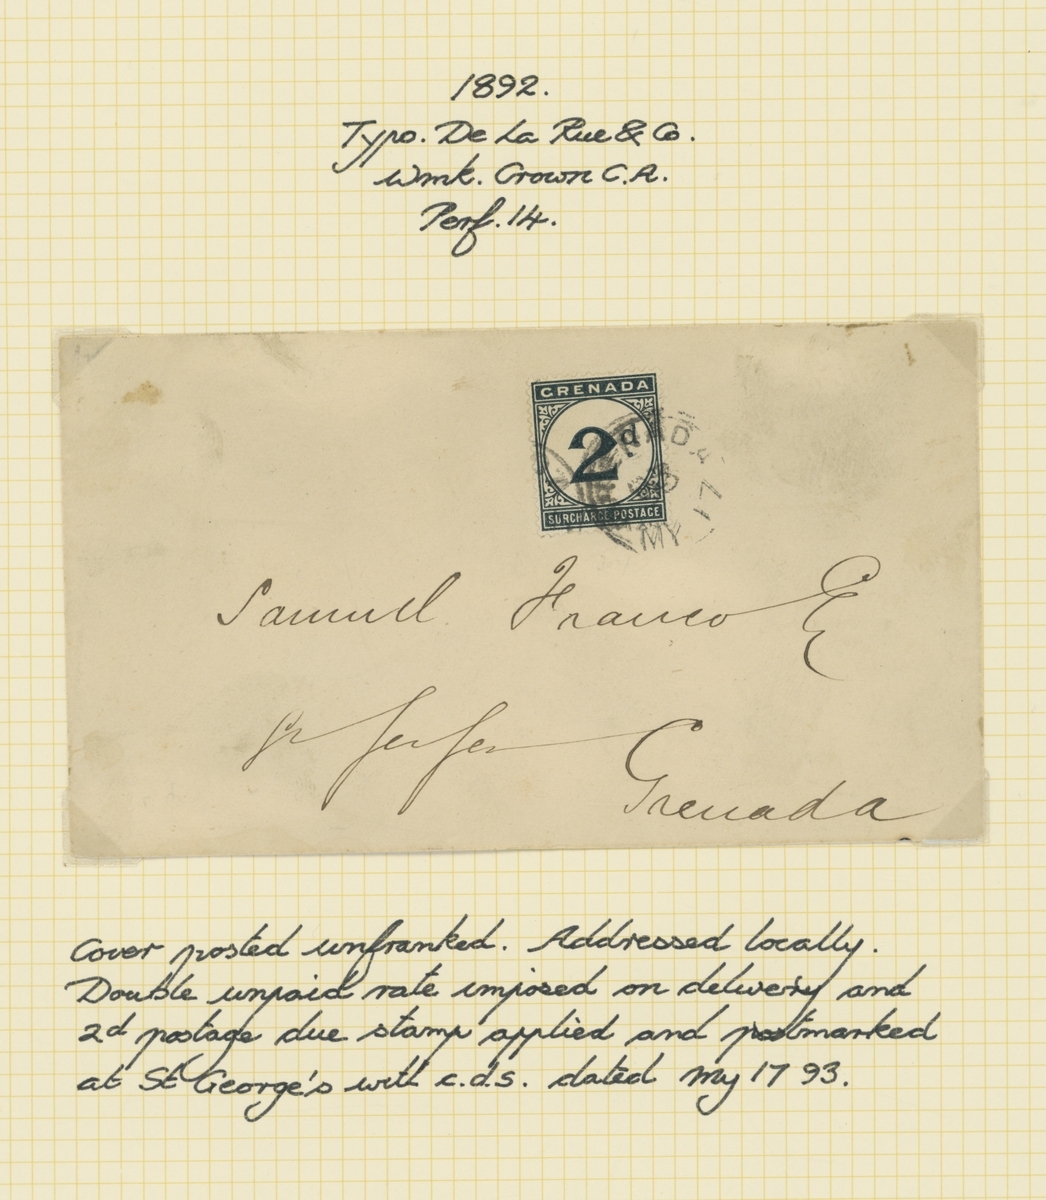 1892.
Typo. De La Rue & Co.
Wmk. Crown C.A.
Perf. 14.
GRENADA
2d
SURCHARGE POSTAGE
MY 17
Samuel Franco E
Grenada
Cover posted unfranked. Addressed locally.
Double unpaid rate imposed on delivery and
2d postage due stamp applied and postmarked
at St George's with c.d.s. dated My 17 93.